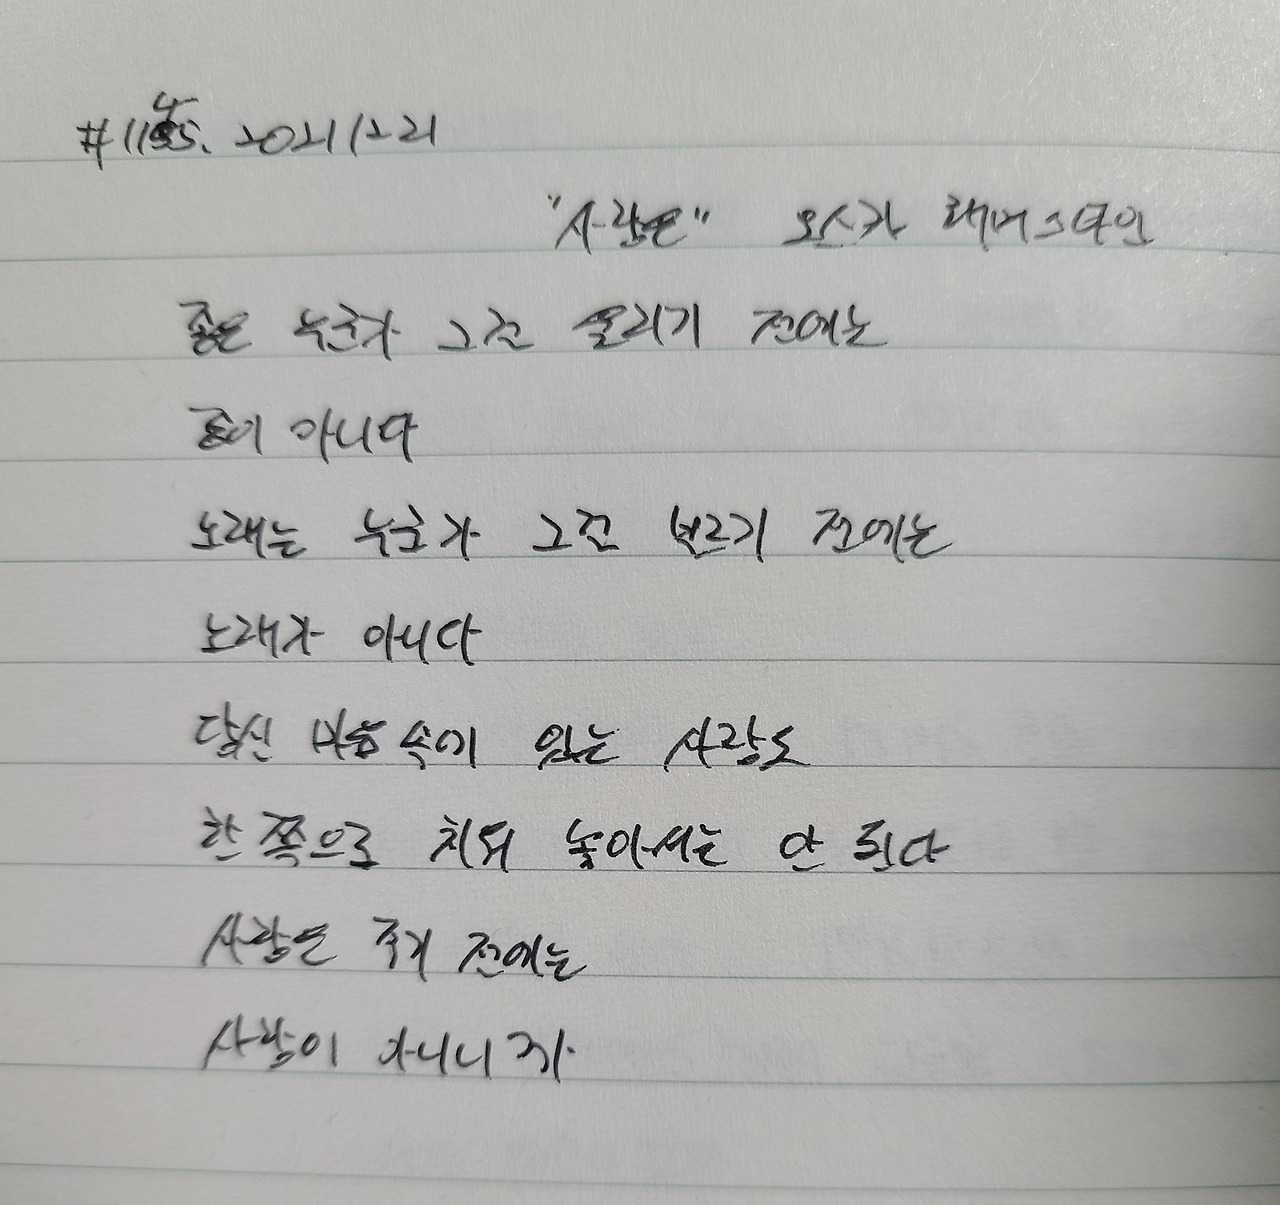 #1145. 20211221
"사랑은" 오스카 해머스타인
종은 누군가 그걸 울리기 전에는
종이 아니다
노래는 누군가 그걸 부르기 전에는
노래가 아니다
당신 마음 속에 있는 사랑도
한 쪽으로 치워 놓아서는 안 된다
사랑은 주기 전에는
사랑이 아니니까